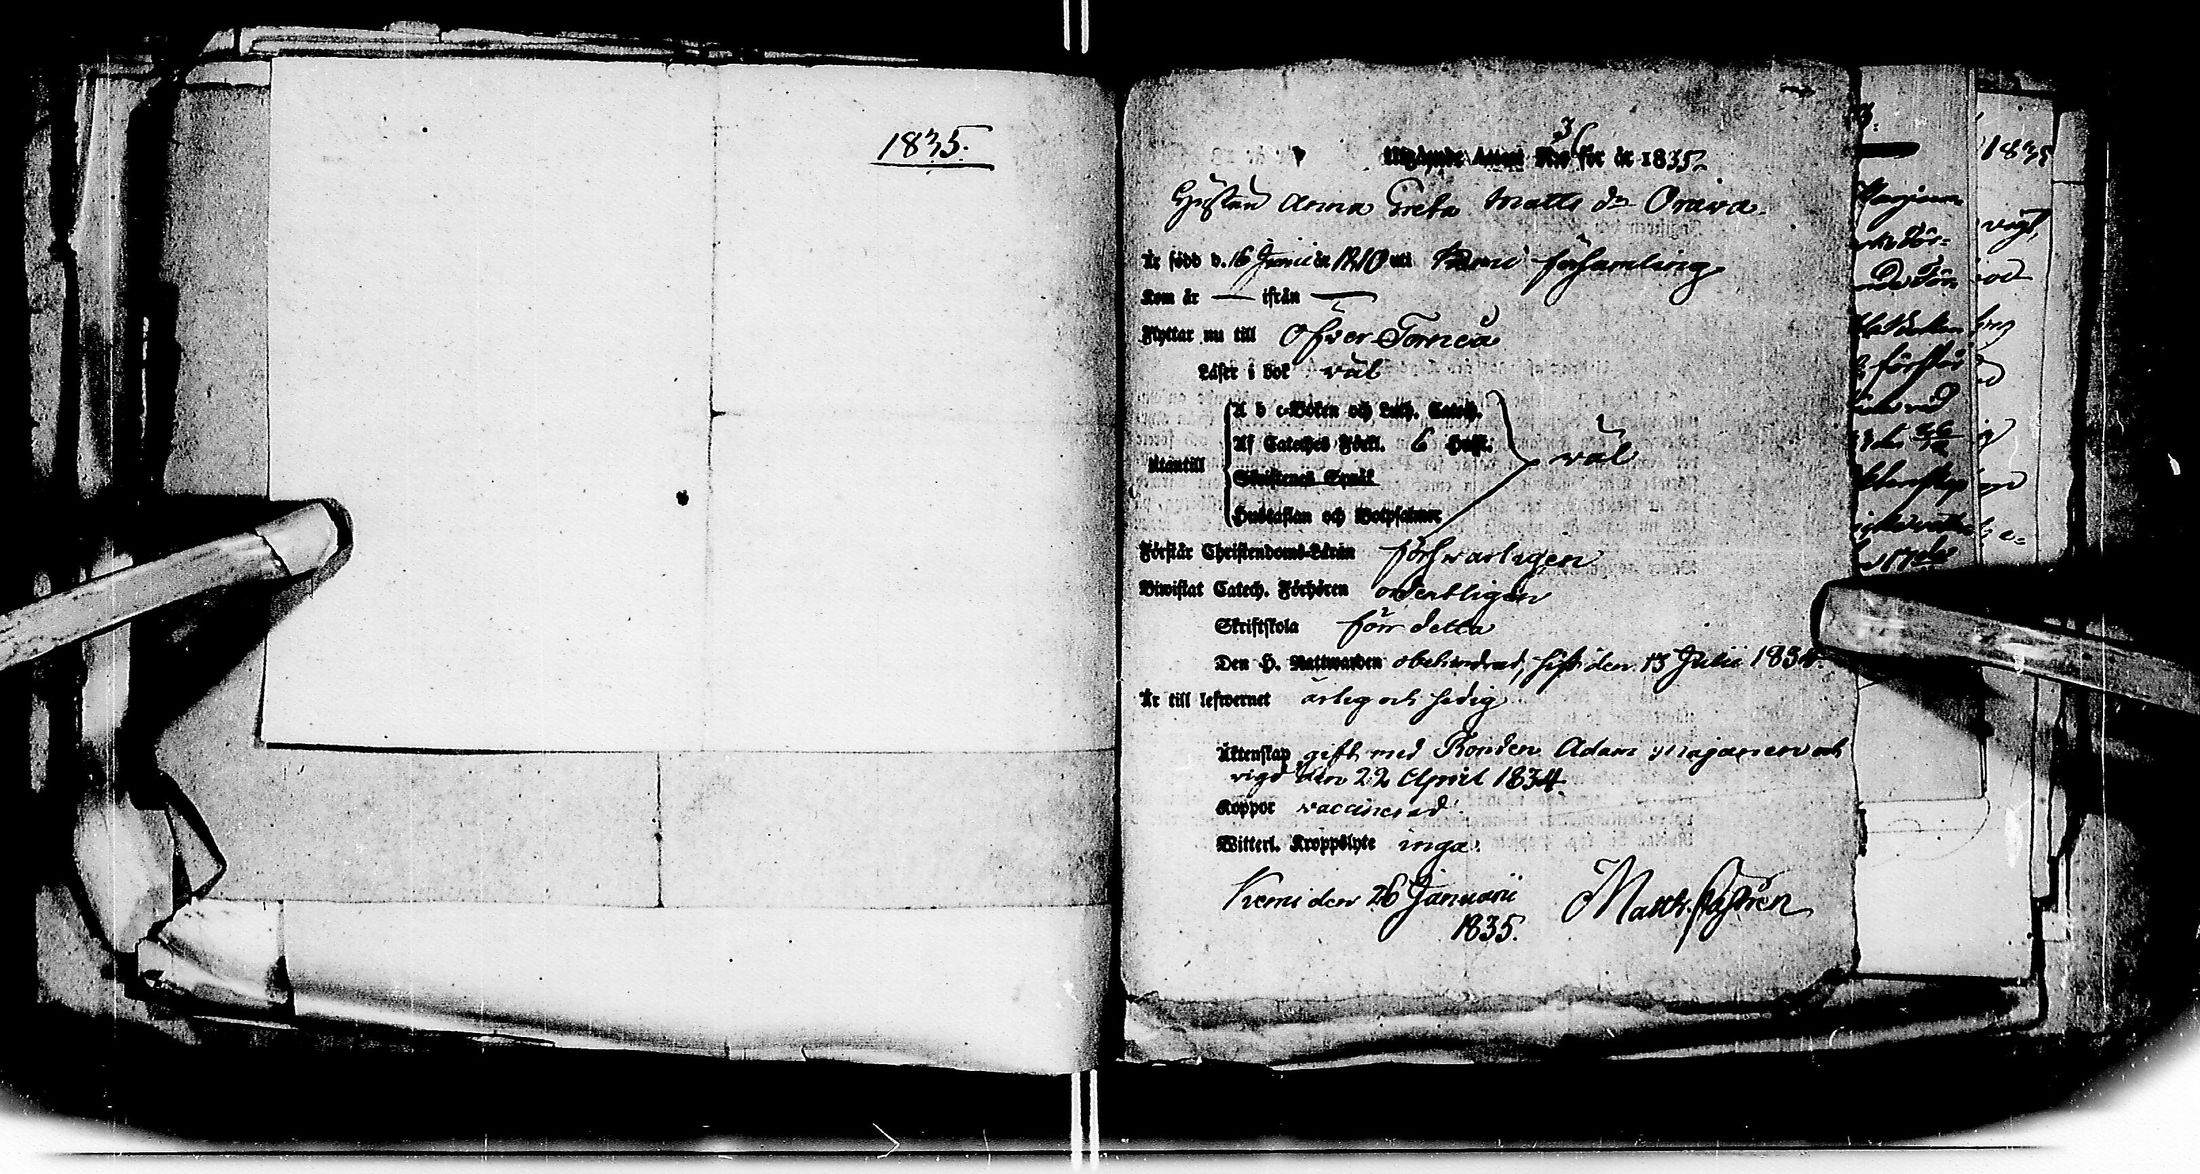 1835.
3
Utgående Attest No för år 1835.
Hustrun Anna Greta Matts dr Oraiva.
Är född d. 16 Junii år 1810 uti Kemi församling
Kom år — ifrån —
Flyttar nu till Öfver Torneå
Läser i bok väl
A b c-Boken och Luth. Catech.
Af Cateches Förkl. 6 Huft.
Utantill
väl
Skriftenes Språk
Hustaflan och Botpsalmer
Förstår Christendoms-Läran försvarligen
Biwistat Catech. Förhören ordentligen
Skriftskola förr detta
Den H. Nattwarden obehindrad, sist den 13 Julii 1834.
Är till lefwernet ärlig och sedig
Äktenskap gift med Bonden Adam Majanen och
vigd den 22 April 1834.
Koppor vaccinerad
Witterl. Kroppslyte inga.
Kemi den 26 Januarii
1835.
Matth. Castrén
1835
vigt,